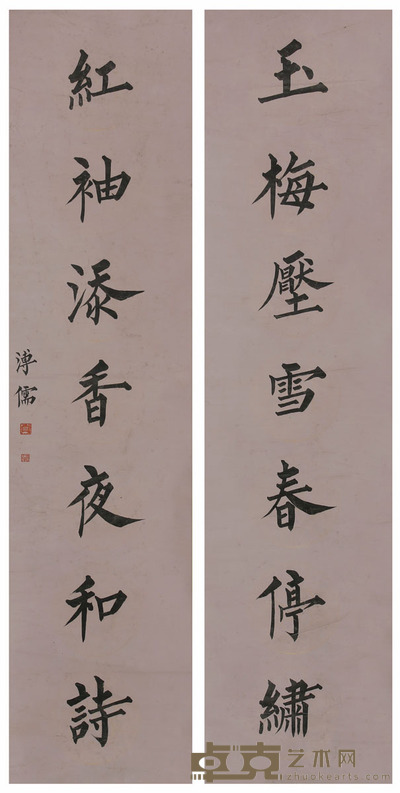 玉梅壓雪春停繡
紅袖添香夜和詩
溥儒
卓克艺术网
zhuokearts.com